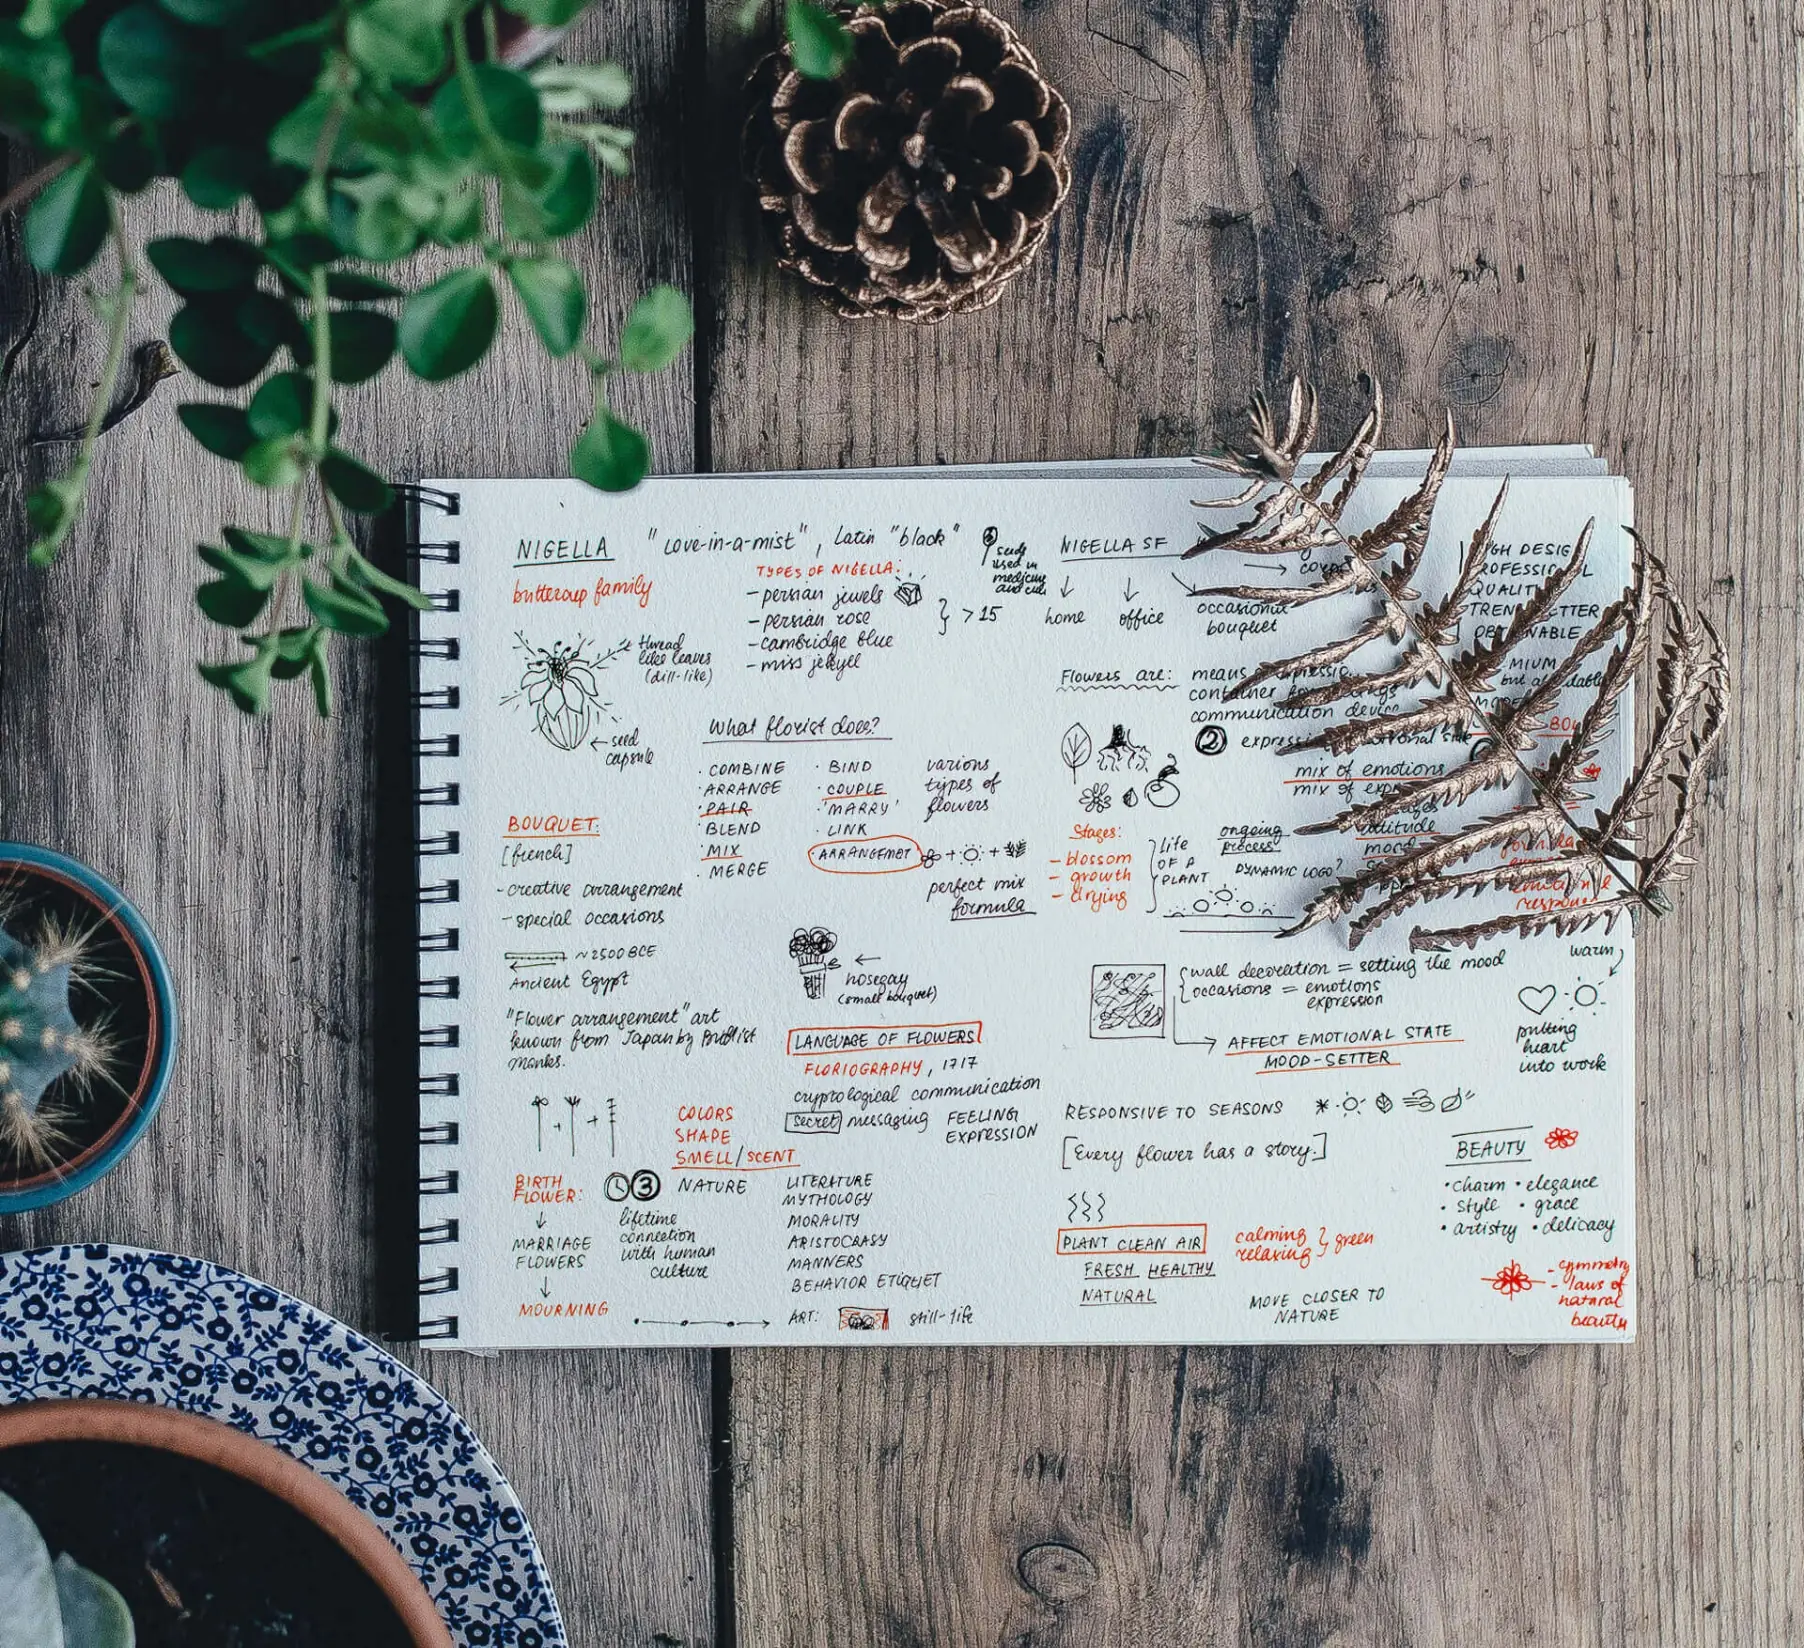 NIGELLA "Love-in-a-mist", Latin "black"
buttercup family
TYPES OF NIGELLA:
- persian jewels
- persian rose
- cambridge blue
- miss jekyll
> 15
seeds
used in
medicine
thread
like leaves
(dill-like)
seed
capsule
What florist does?
· COMBINE
· ARRANGE
· PAIR
· BLEND
· MIX
· MERGE
· BIND
· COUPLE
· 'MARRY'
· LINK
· ARRANGEMET
various
types of
flowers
perfect mix
formula
BOUQUET:
[french]
- creative arrangement
- special occasions
~ 2500 BCE
Ancient Egypt
"Flower arrangement" art
known from Japan by Buddist
monks.
nosegay
(small bouquet)
LANGUAGE OF FLOWERS
FLORIOGRAPHY, 1717
cryptological communication
secret messaging
FEELING
EXPRESSION
COLORS
SHAPE
SMELL/SCENT
BIRTH
FLOWER:
MARRIAGE
FLOWERS
MOURNING
3
lifetime
connection
with human
culture
NATURE
LITERATURE
MYTHOLOGY
MORALITY
ARISTOCRASY
MANNERS
BEHAVIOR ETIQUET
ART:
still-life
NIGELLA SF
home
office
occasional
bouquet
Flowers are:
means
container
communication
2
mix of emotions
mix of
attitude
mood
Stages:
- blossom
- growth
- drying
life
OF A
PLANT
ongoing
process
DYNAMIC LOGO?
wall decoration = setting the mood
occasions = emotions
expression
AFFECT EMOTIONAL STATE
MOOD-SETTER
warm
putting
heart
into work
RESPONSIVE TO SEASONS
[Every flower has a story.]
PLANT CLEAN AIR
FRESH HEALTHY
NATURAL
calming
relaxing
green
MOVE CLOSER TO
NATURE
BEAUTY
· charm · elegance
· style · grace
· artistry · delicacy
- symmetry
- laws of
natural
beauty